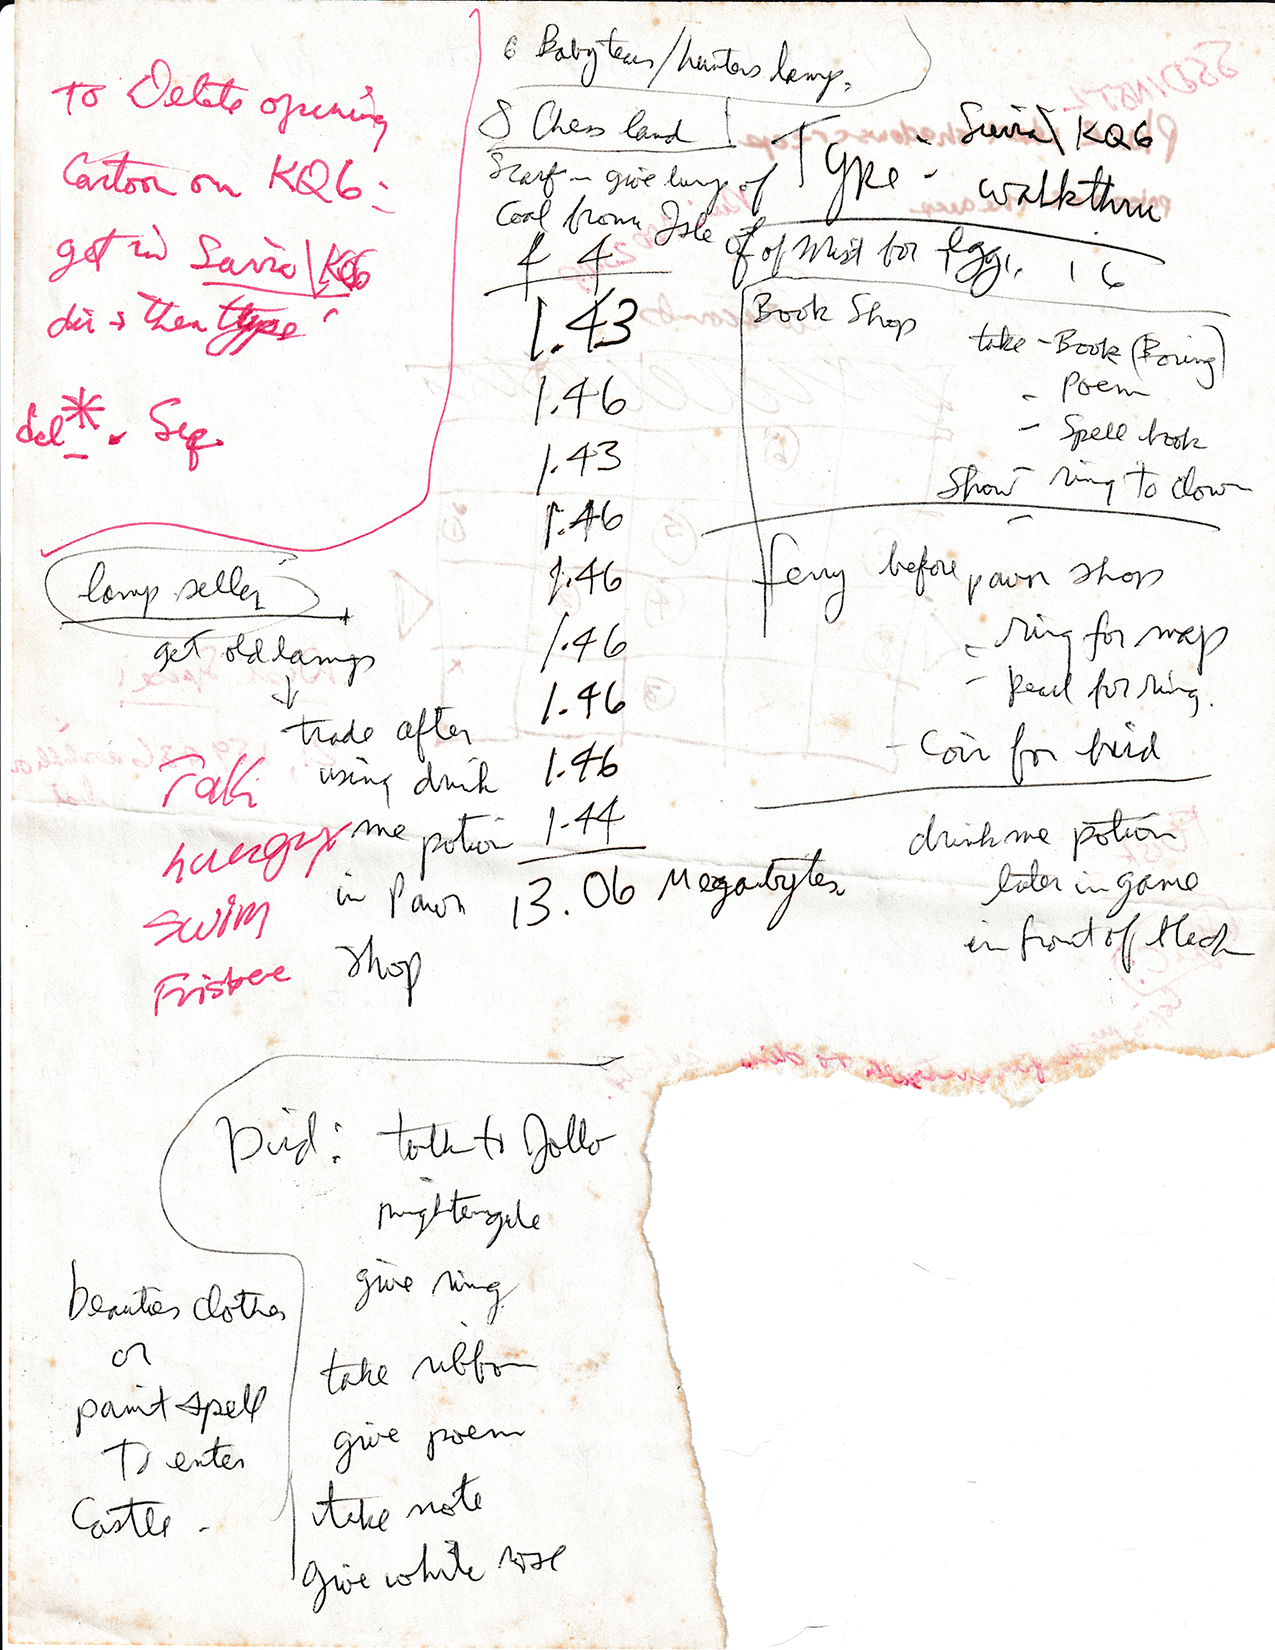 To Delete opening
Cartoon on KQ6:
get in Sierra\KQ6
dir > then type
del *. Seq.
6 Baby tears/hunters lamp.
8 Chess land
Scarf - give lump of
Coal from Isle of
of Mist for Egg.
Type - Sierra\KQ6
walkthru
16
4 4
1.43
1.46
1.43
1.46
1.46
1.46
1.46
1.46
1.44
13.06 Megabytes
Book Shop
take - Book (Boring)
- Poem
- Spell book
Show ring to clown
ferry before pawn shop
- ring for map
- pearl for ring.
- Coin for bird
drink me potion
later in game
in front of
lamp seller
get old lamps
trade after
using drink
me potion
in Pawn
shop
Talk
hungry
swim
Frisbee
Bird: talk to Jollo
nightengale
give ring
take ribbon
give poem
take note
give white rose
beauties clothes
or
paint spell
To enter
Castle.